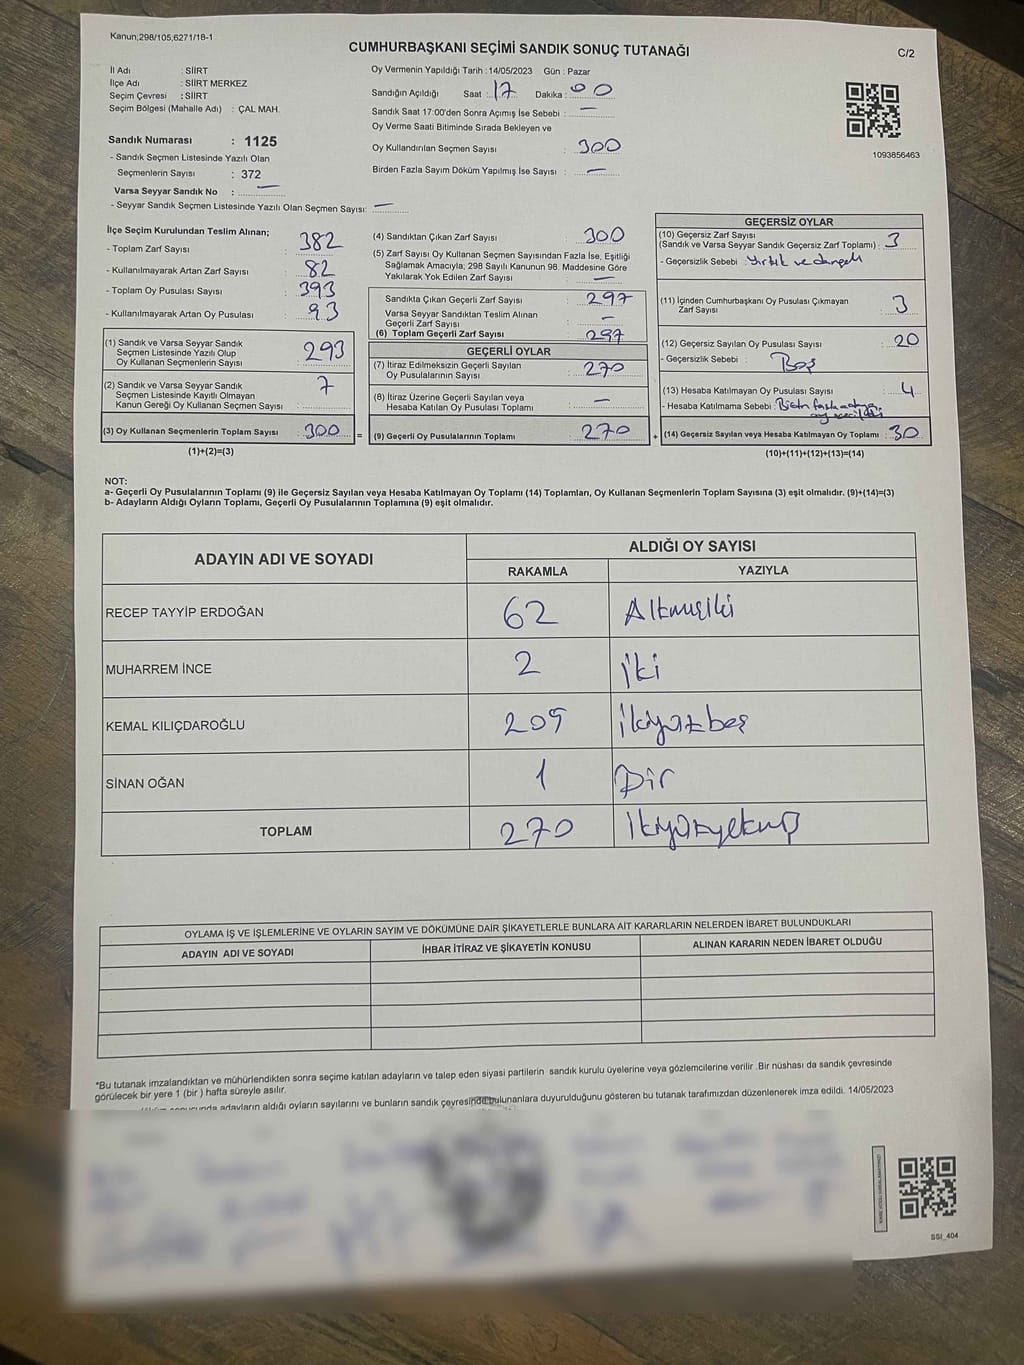 Kanun;298/105,6271/18-1
CUMHURBAŞKANI SEÇİMİ SANDIK SONUÇ TUTANAĞI
C/2
İl Adı : SİİRT
İlçe Adı : SİİRT MERKEZ
Seçim Çevresi : SİİRT
Seçim Bölgesi (Mahalle Adı) : ÇAL MAH.
Sandık Numarası : 1125
- Sandık Seçmen Listesinde Yazılı Olan
Seçmenlerin Sayısı : 372
Varsa Seyyar Sandık No : —
- Seyyar Sandık Seçmen Listesinde Yazılı Olan Seçmen Sayısı: —
Oy Vermenin Yapıldığı Tarih : 14/05/2023 Gün : Pazar
Sandığın Açıldığı Saat : 17 Dakika : 00
Sandık Saat 17:00'den Sonra Açımış İse Sebebi : —
Oy Verme Saati Bitiminde Sırada Bekleyen ve
Oy Kullandırılan Seçmen Sayısı : 300
Birden Fazla Sayım Döküm Yapılmış İse Sayısı : —
1093856463
İlçe Seçim Kurulundan Teslim Alınan;
- Toplam Zarf Sayısı 382
- Kullanılmayarak Artan Zarf Sayısı 82
- Toplam Oy Pusulası Sayısı 393
- Kullanılmayarak Artan Oy Pusulası 93
(1) Sandık ve Varsa Seyyar Sandık
Seçmen Listesinde Yazılı Olup
Oy Kullanan Seçmenlerin Sayısı 293
(2) Sandık ve Varsa Seyyar Sandık
Seçmen Listesinde Kayıtlı Olmayan
Kanun Gereği Oy Kullanan Seçmen Sayısı 7
(3) Oy Kullanan Seçmenlerin Toplam Sayısı 300 =
(1)+(2)=(3)
(4) Sandıktan Çıkan Zarf Sayısı : 300
(5) Zarf Sayısı Oy Kullanan Seçmen Sayısından Fazla İse, Eşitliği
Sağlamak Amacıyla; 298 Sayılı Kanunun 98. Maddesine Göre
Yakılarak Yok Edilen Zarf Sayısı : —
Sandıkta Çıkan Geçerli Zarf Sayısı : 297
Varsa Seyyar Sandıktan Teslim Alınan
Geçerli Zarf Sayısı : —
(6) Toplam Geçerli Zarf Sayısı : 297
GEÇERLİ OYLAR
(7) İtiraz Edilmeksizin Geçerli Sayılan
Oy Pusulalarının Sayısı : 270
(8) İtiraz Üzerine Geçerli Sayılan veya
Hesaba Katılan Oy Pusulası Toplamı : —
(9) Geçerli Oy Pusulalarının Toplamı : 270 +
GEÇERSİZ OYLAR
(10) Geçersiz Zarf Sayısı
(Sandık ve Varsa Seyyar Sandık Geçersiz Zarf Toplamı) : 3
- Geçersizlik Sebebi : Yırtık ve
(11) İçinden Cumhurbaşkanı Oy Pusulası Çıkmayan
Zarf Sayısı : 3
(12) Geçersiz Sayılan Oy Pusulası Sayısı : 20
- Geçersizlik Sebebi : Boş
(13) Hesaba Katılmayan Oy Pusulası Sayısı : 4
- Hesaba Katılmama Sebebi : Birden fazla
(14) Geçersiz Sayılan veya Hesaba Katılmayan Oy Toplamı : 30
(10)+(11)+(12)+(13)=(14)
NOT:
a- Geçerli Oy Pusulalarının Toplamı (9) ile Geçersiz Sayılan veya Hesaba Katılmayan Oy Toplamı (14) Toplamları, Oy Kullanan Seçmenlerin Toplam Sayısına (3) eşit olmalıdır. (9)+(14)=(3)
b- Adayların Aldığı Oyların Toplamı, Geçerli Oy Pusulalarının Toplamına (9) eşit olmalıdır.
ADAYIN ADI VE SOYADI ALDIĞI OY SAYISI
RAKAMLA YAZIYLA
RECEP TAYYİP ERDOĞAN 62 Altmışiki
MUHARREM İNCE 2 iki
KEMAL KILIÇDAROĞLU 205 ikiyüzbeş
SİNAN OĞAN 1 Bir
TOPLAM 270 ikiyüzyetmiş
OYLAMA İŞ VE İŞLEMLERİNE VE OYLARIN SAYIM VE DÖKÜMÜNE DAİR ŞİKAYETLERLE BUNLARA AİT KARARLARIN NELERDEN İBARET BULUNDUKLARI
ADAYIN ADI VE SOYADI İHBAR İTİRAZ VE ŞİKAYETİN KONUSU ALINAN KARARIN NEDEN İBARET OLDUĞU
*Bu tutanak imzalandıktan ve mühürlendikten sonra seçime katılan adayların ve talep eden siyasi partilerin sandık kurulu üyelerine veya gözlemcilerine verilir .Bir nüshası da sandık çevresinde
görülecek bir yere 1 (bir ) hafta süreyle asılır.
adayların aldığı oyların sayılarını ve bunların sandık çevresinde bulunanlara duyurulduğunu gösteren bu tutanak tarafımızdan düzenlenerek imza edildi. 14/05/2023
SSI_404